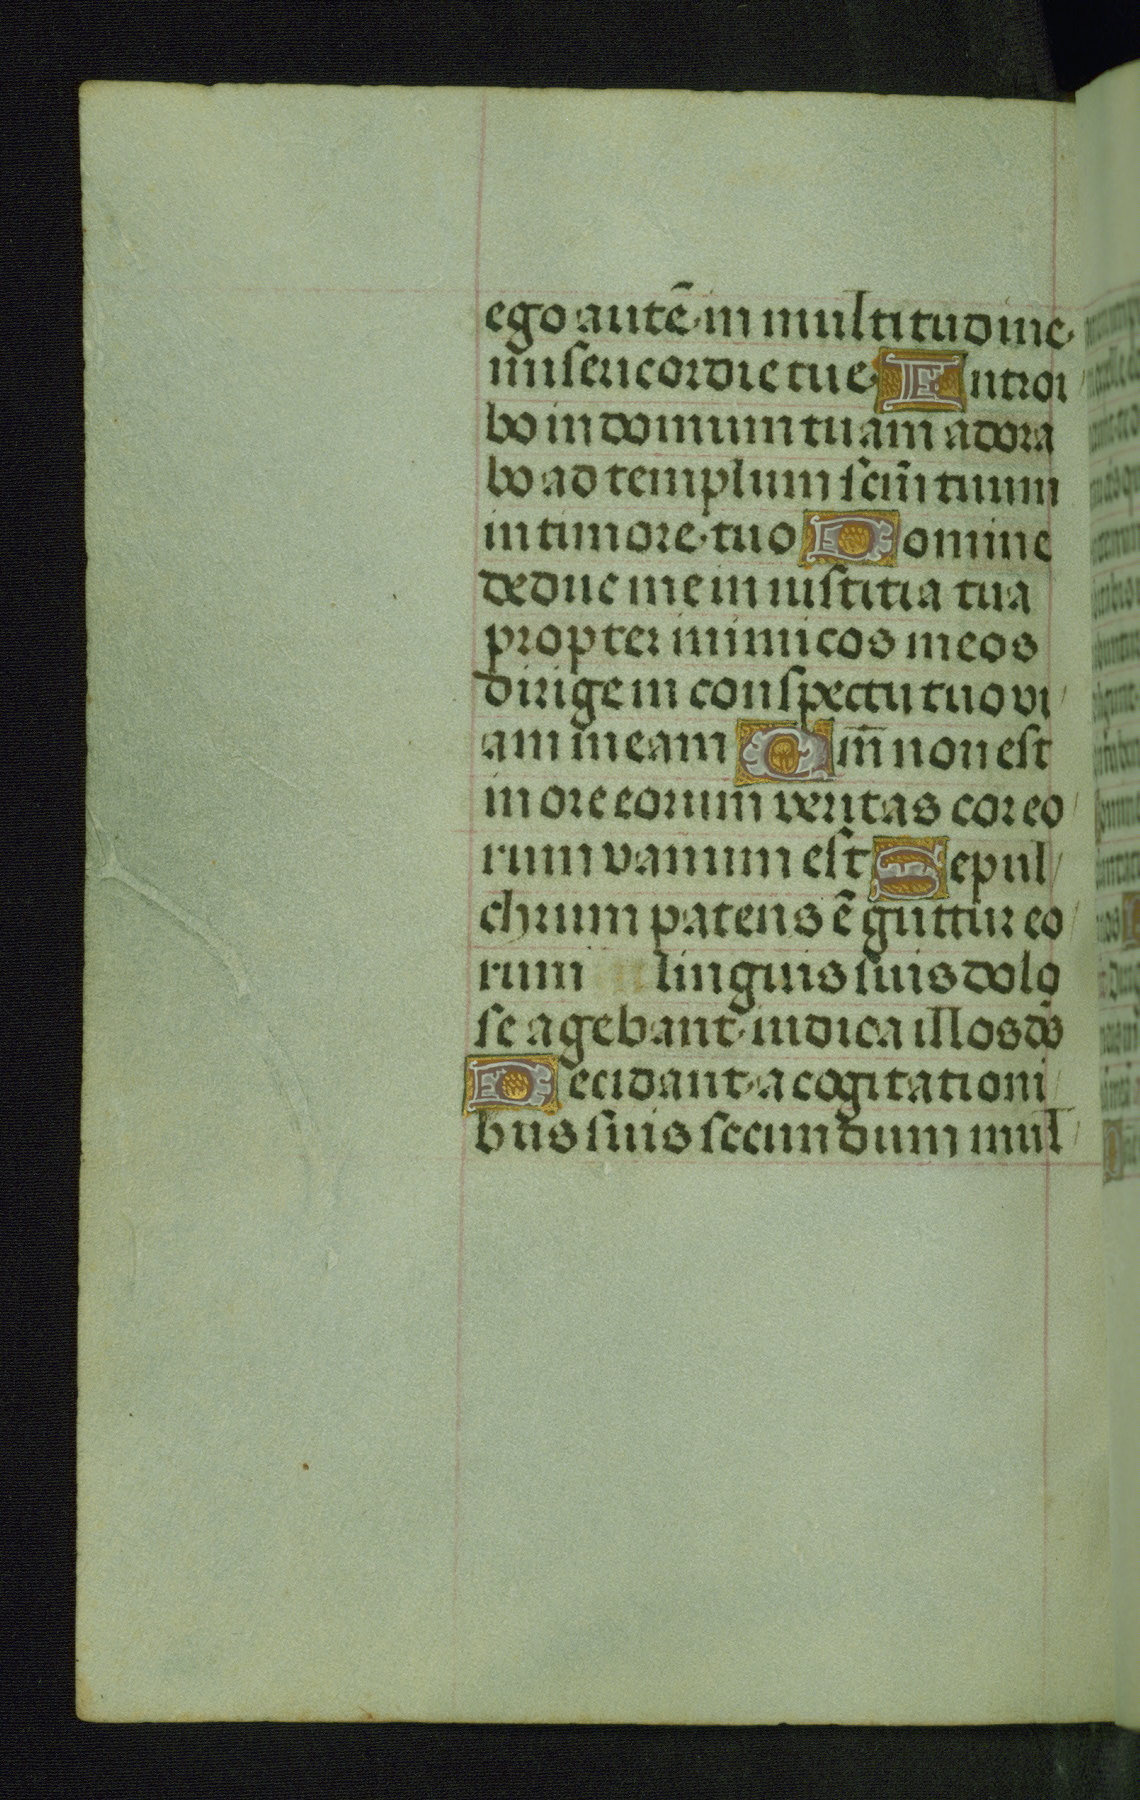 ego autē in multitudine
misericordie tue Introi
bo in domum tuam adora
bo ad templum scm̄ tuum
in timore tuo Domine
deduc me in iustitia tua
propter inimicos meos
dirige in conspectu tuo vi
am meam Qm̄ non est
in ore eorum veritas cor eo
rum vanum est Sepul
chrum patens ē guttur eo
rum linguis suis dolo
se agebant iudica illos ds̄
Decidant a cogitationi
bus suis secundum mul